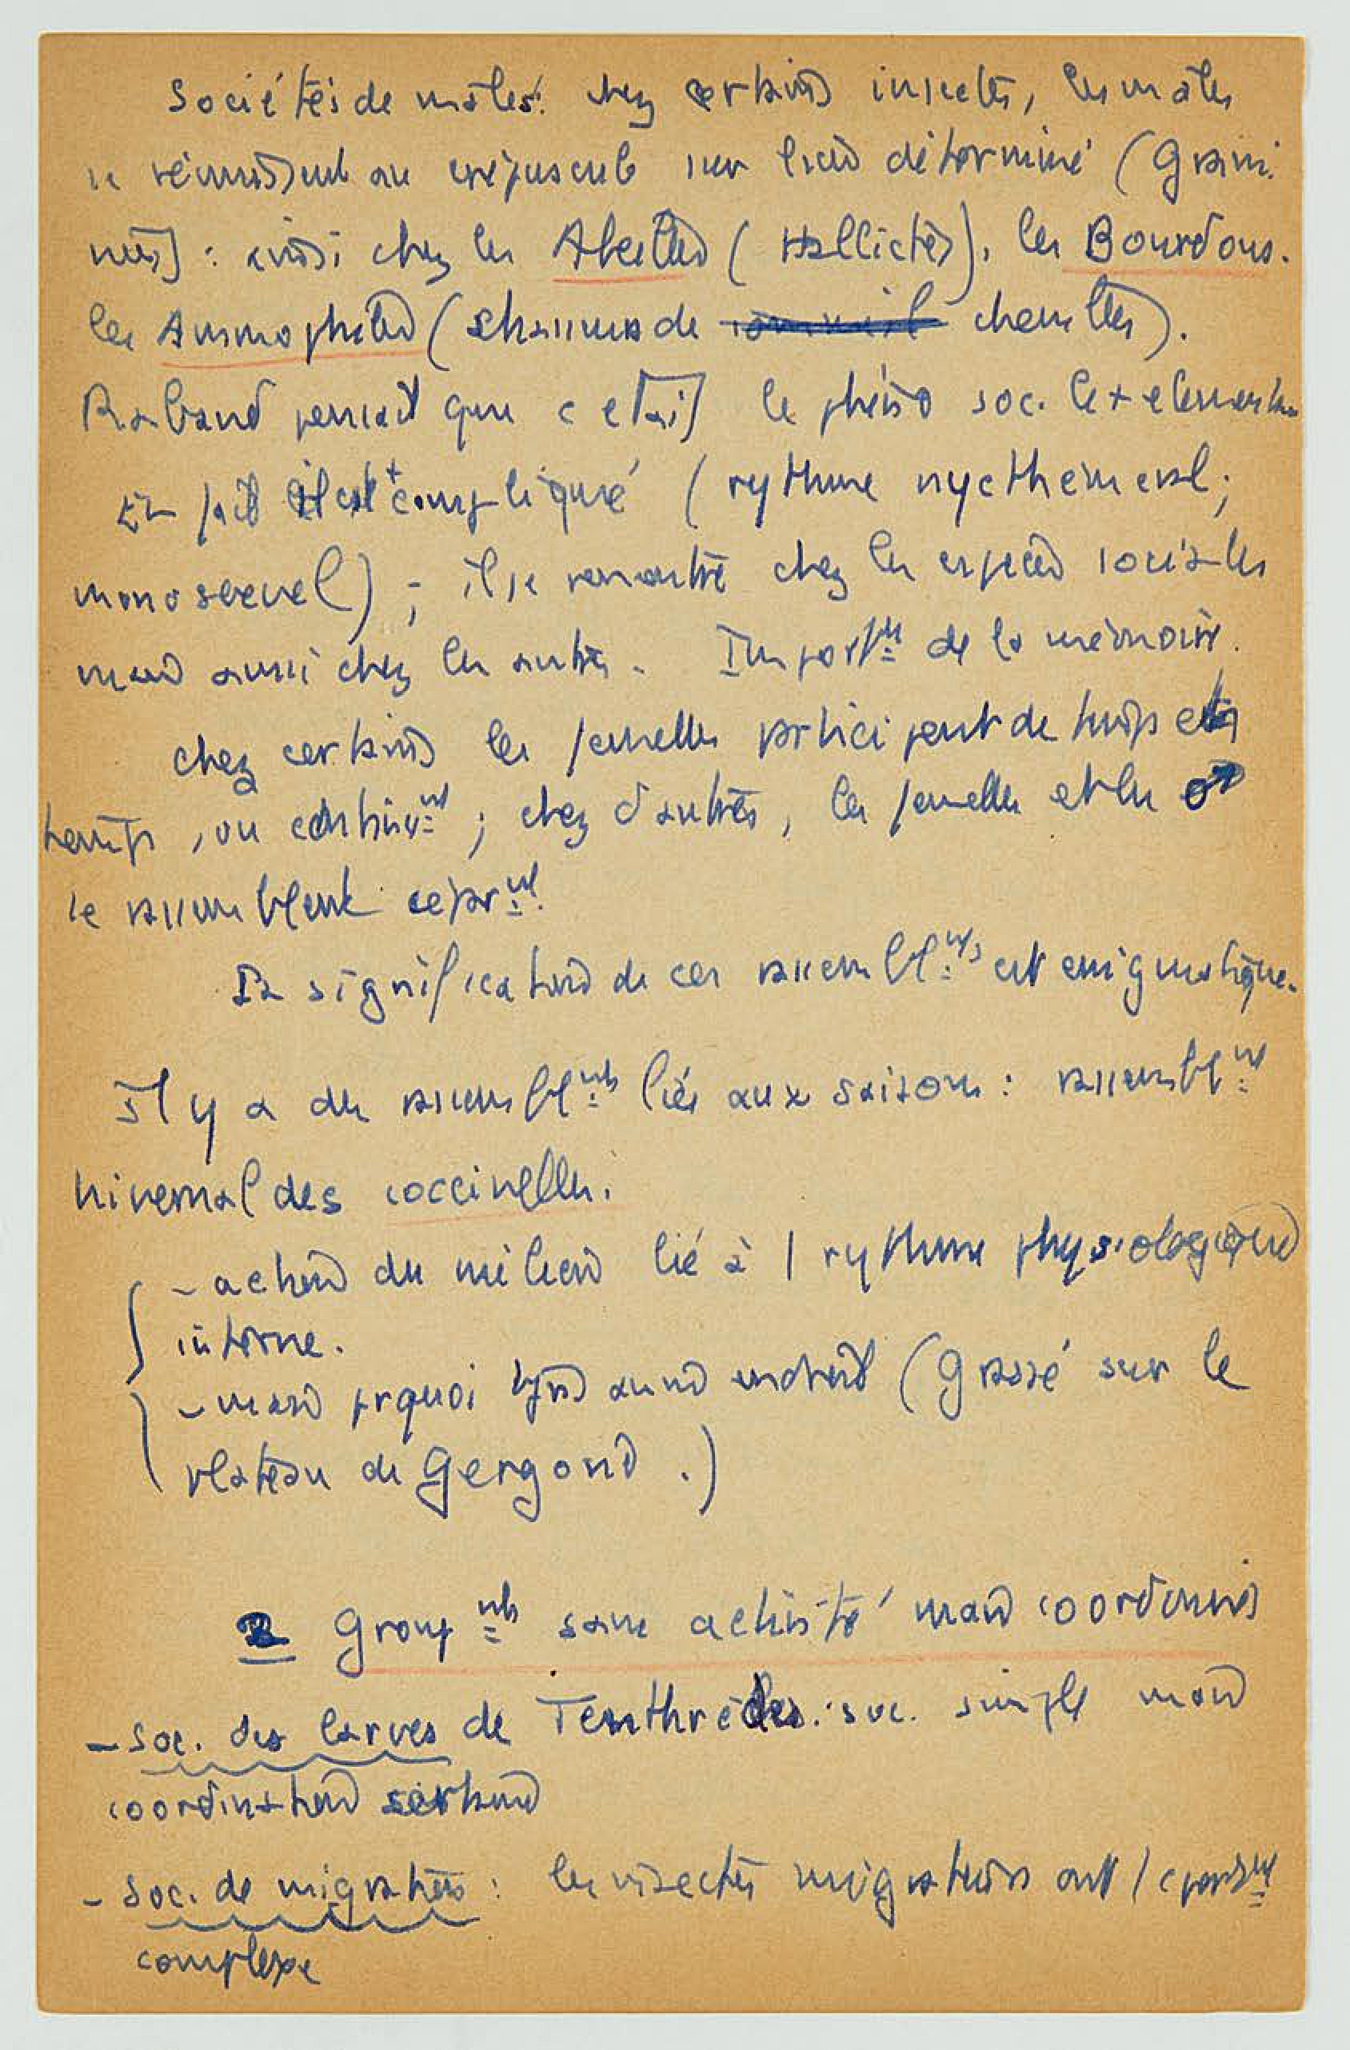 Sociétés de mâles. chez certains insectes, les mâles
se réunissent au crépuscule sur lieu déterminé (Grami-
nées) : ainsi chez les Abeilles (Hallictes), les Bourdons.
les Ammophiles (chasseurs de chenilles).
Rabaud pensait que c'était le phéno soc. le + elementaire
En fait il est + compliqué (rythme nycthemeral ;
monosexuel) ; il se rencontre chez les espèces sociales
mais aussi chez les autres. Import^ce de la mémoire.
chez certains les femelles participent de temps en
temps, ou continu^nt ; chez d'autres, les femelles et les ♂
se rassemblent sépar^nt.
La signification de ces rassembl^nts est enigmatique.
Il y a des rassembl^nts liés aux saisons : rassembl^nt
hivernal des coccinelles.
- action du milieu lié à 1 rythme physiologique
interne.
- mais prquoi tjrs au m endroit (Grassé sur le
plateau de Gergovie.)
2 Group^nts sans activité mais coordonnés
- soc. des larves de Tenthrèdes : soc. simple mais
coordination certaine
- soc. de migrateurs : les insectes migrateurs ont 1 cport^nt
complexe